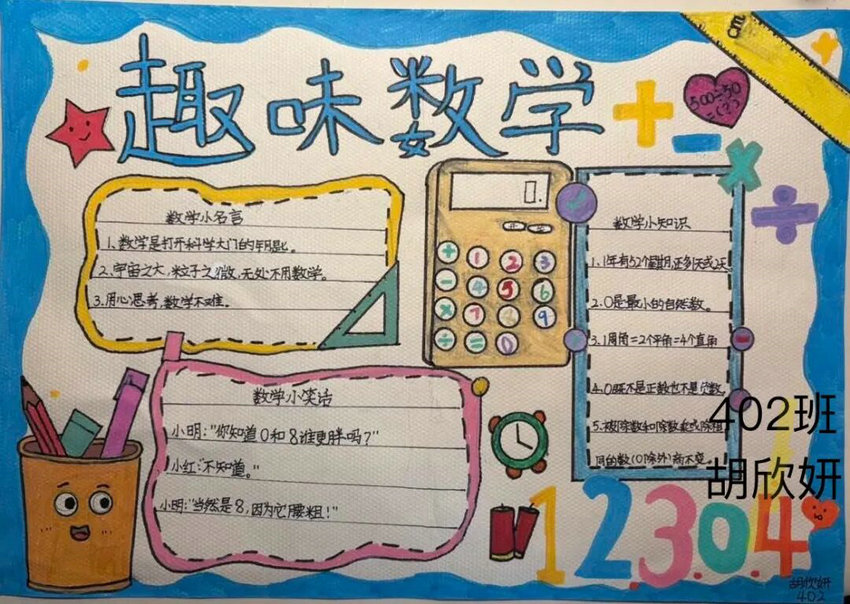 趣味数学
cm
500÷50
=(?)
数学小名言
1、数学是打开科学大门的钥匙。
2、宇宙之大,粒子之微,无处不用数学。
3.用心思考,数学不难。
数学小笑话
小明:"你知道0和8谁更胖吗?"
小红:"不知道。"
小明:"当然是8,因为它腰粗!"
0.
+ 1 2 3
- 4 5 6
× 7 8 9
÷ = 0
数学小知识
1.1年有52个星期,还多1天或2天
2.0是最小的自然数。
3.1周角=2个平角=4个直角
4.0既不是正数也不是负数。
5.被除数和除数乘或除相
同的数(0除外)商不变。
402班
胡欣妍
1 2 3 0 4
胡欣妍
402